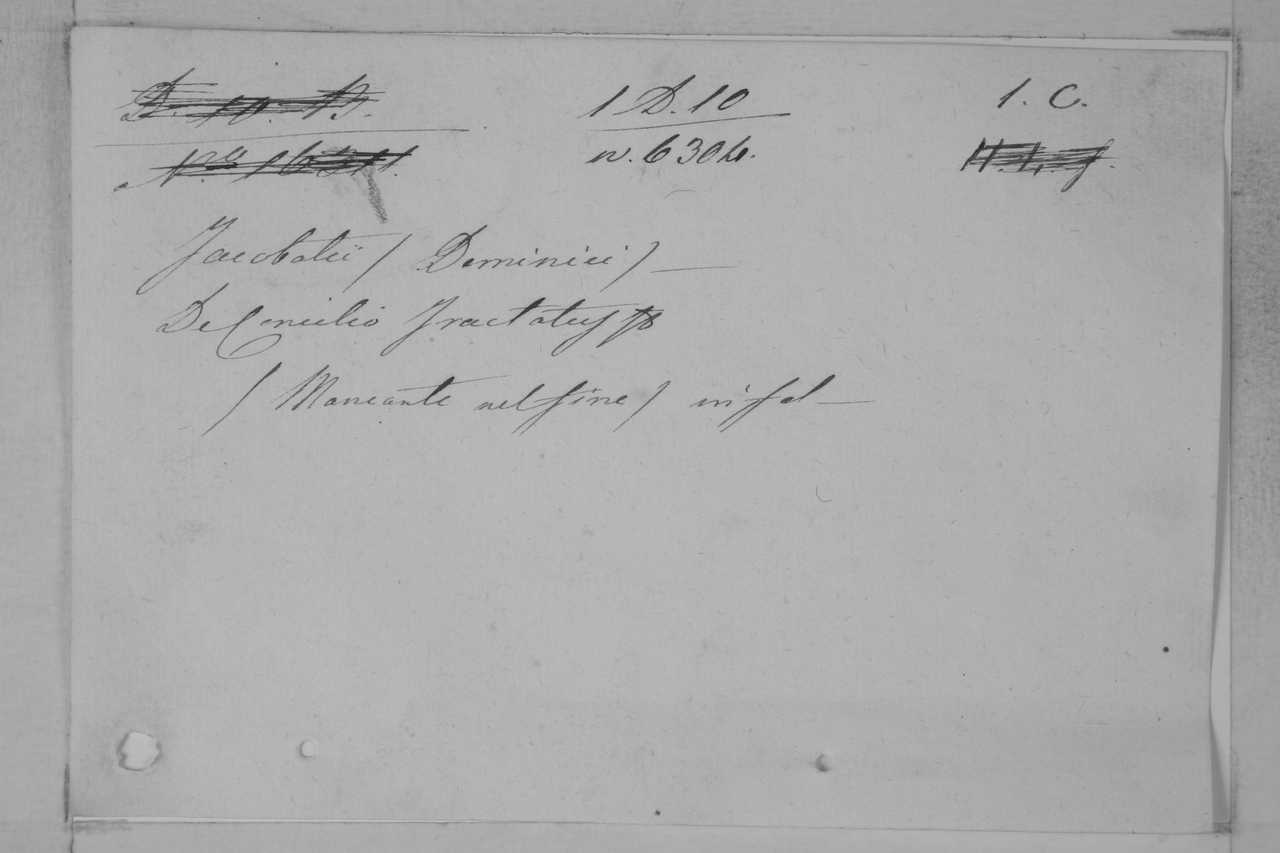 D. 10. B. 1 D. 10 1. C.
N.º n. 6304.
Jacobatii / Dominici /
De Concilio Tractatus
/ Mancante nel fine / in fol